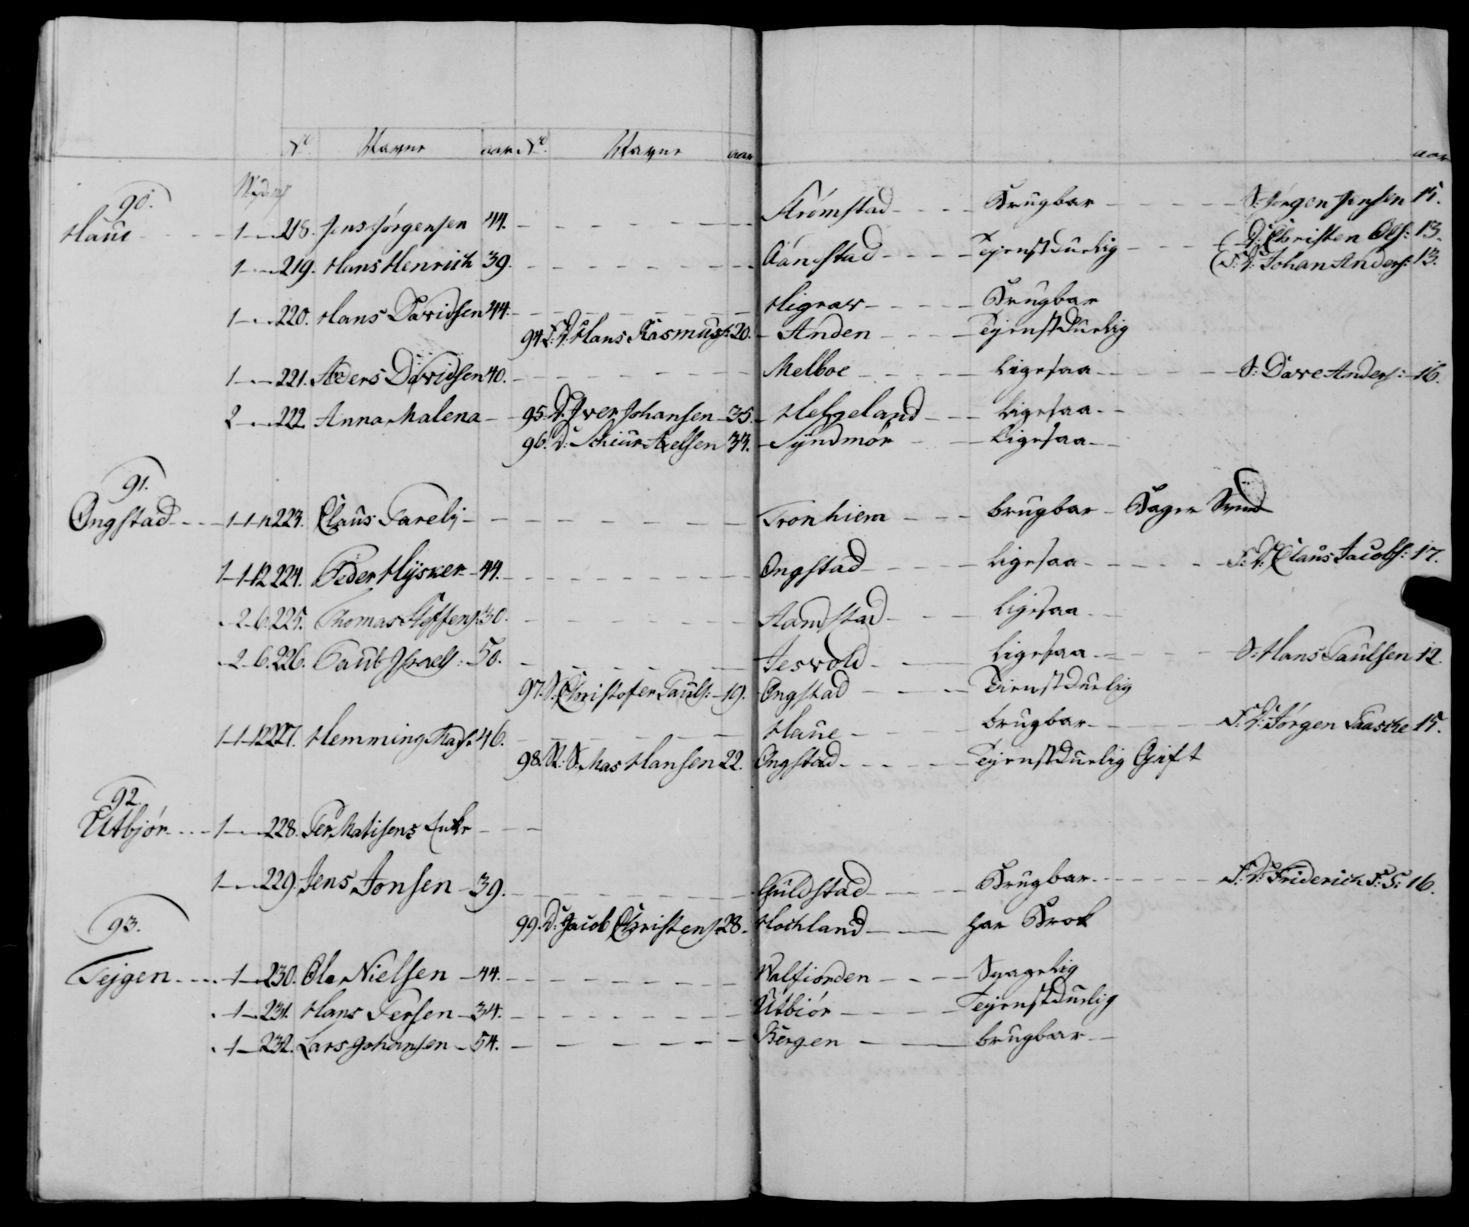 No Navne aar No Navne aar aar
90.
Haue 1 218. Jens Jørgensen 44. Strømstad Brugbar S: Jørgen Jensen 15.
D: Christen Ols: 13.
1 219. Hans Henrich 39. Aanstad Tienstduelig Johan Anders: 13.
1 220. Hans Davidsen 44. Higrav Brugbar
94. Hans Rasmus: 20. Anden Tienstduelig
1 221. Anders Davidsen 40. Melboe Ligesaa S: Dave Anders: 16.
2 222. Anna Malena 95. D: Iver Johansen 35. Helgeland Ligesaa
96. D: Axelsen 33. Syndmør Ligesaa
91.
Ongstad 1-1-12 223. Claus Farely Tronhiem brugbar
1-1-12 224. Peder Hysker 44. Ongstad Ligesaa Claus Jacobs: 17.
2-6 225. Thomas Steffens: 30. Ligesaa
2-6 226. 50. Jesvold Ligesaa S: Hans Paulsen 12.
97. S: Christofer Pauls: 19. Ongstad Tienstduelig
1-1-12 227. Hemming 46. Haue brugbar Jørgen 15.
98. S: Mas Hansen 22. Ongstad Tienstduelig Gift
92.
Utbjør 1 228. Per Matisens Enke
1 229. Jens Jonsen 39. Guldstad Brugbar Friderich 16.
99. D: Jacob Christens: 28. Hochland har Brok
93.
Tejgen 1 230. Ole Nielsen 44. Svagelig
1 231. Hans Persen 34. Utbiør Tienstduelig
1 232. Lars Johansen 54. Bergen brugbar